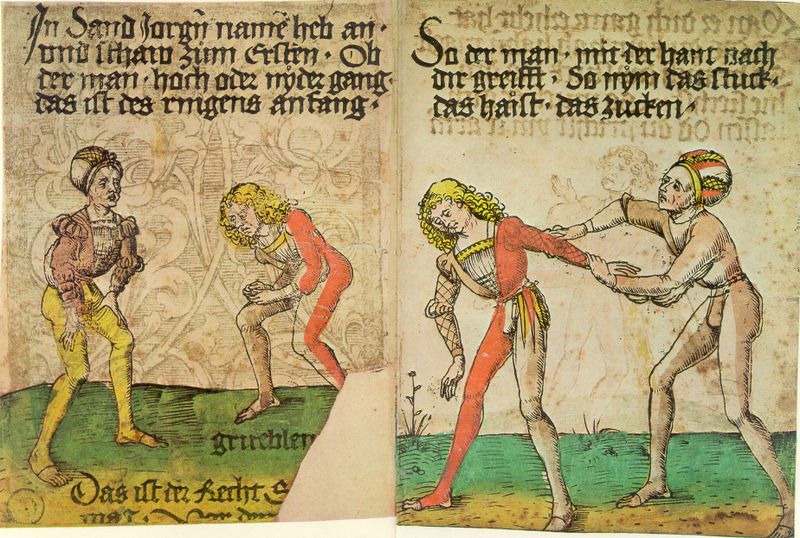 In Sand Jorgñ namẽ heb an ·
vnd schaw zům Ersten · Ob
der man · hoch oder nyder gang ·
das ist des ringens anfang ·
grueblen
Das ist der Recht S
So der man · mit der hant nach
dir greifft · So nym das stuck ·
das haist · das zucken ·